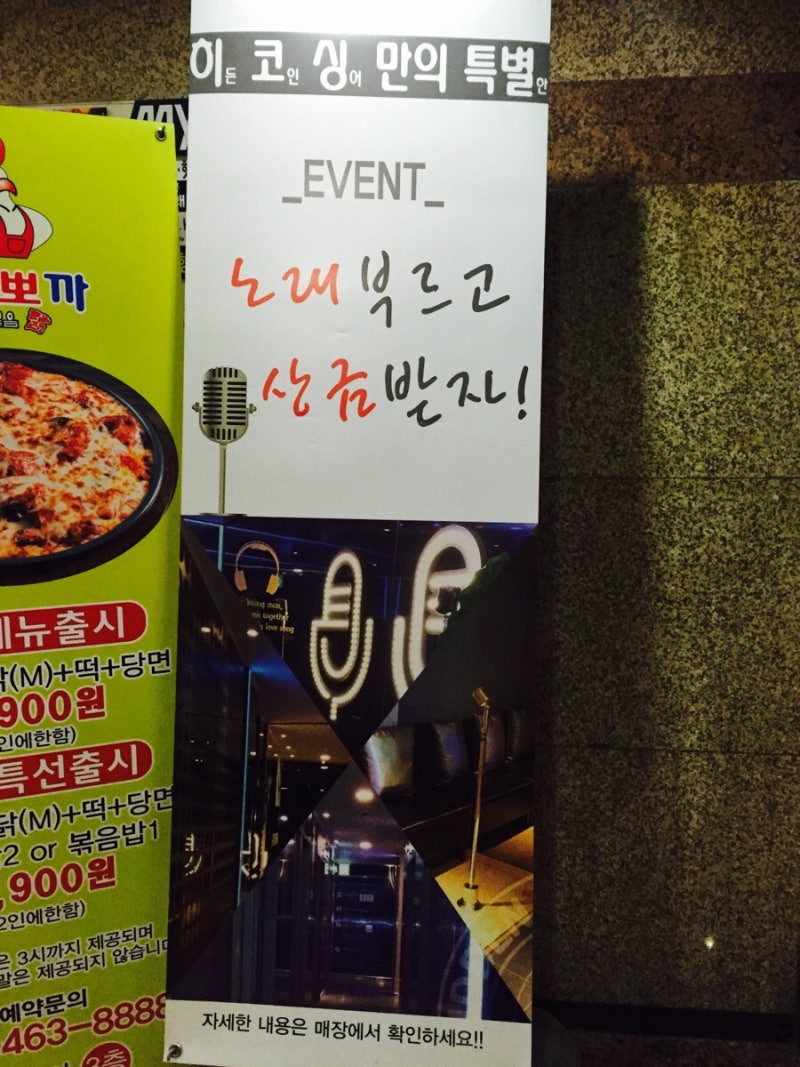 히든 코인 싱어 만의 특별한
_EVENT_
노래부르고
상금받자!
자세한 내용은 매장에서 확인하세요!!
뽀까
닭
메뉴출시
(M)+떡+당면
900원
인에한함)
특선출시
닭(M)+떡+당면
2 or 볶음밥1
,900원
2인에한함)
은 3시까지 제공되며
말은 제공되지 않습니다
예약문의
463-8888
3층